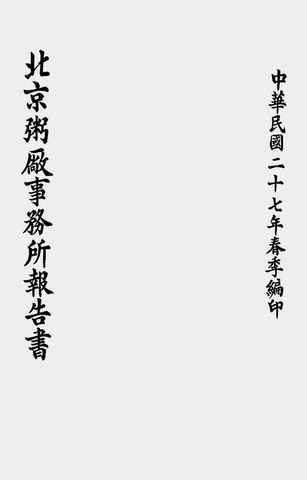 中華民國二十七年春季編印
北京粥廠事務所報告書